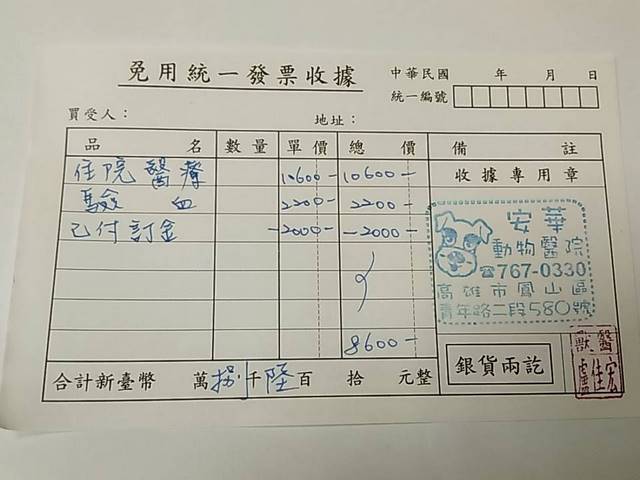 免用統一發票收據
中華民國 年 月 日
統一編號
買受人： 地址：
品 名 數量 單價 總 價 備 註
住院醫療 10600- 10600- 收據專用章
驗 血 2200- 2200-
已付訂金 -2000- -2000-
安華
動物醫院
☎767-0330
高雄市鳳山區
青年路二段580號
8600-
銀貨兩訖
獸醫
盧佳宏
合計新臺幣 萬捌千陸百 拾 元整